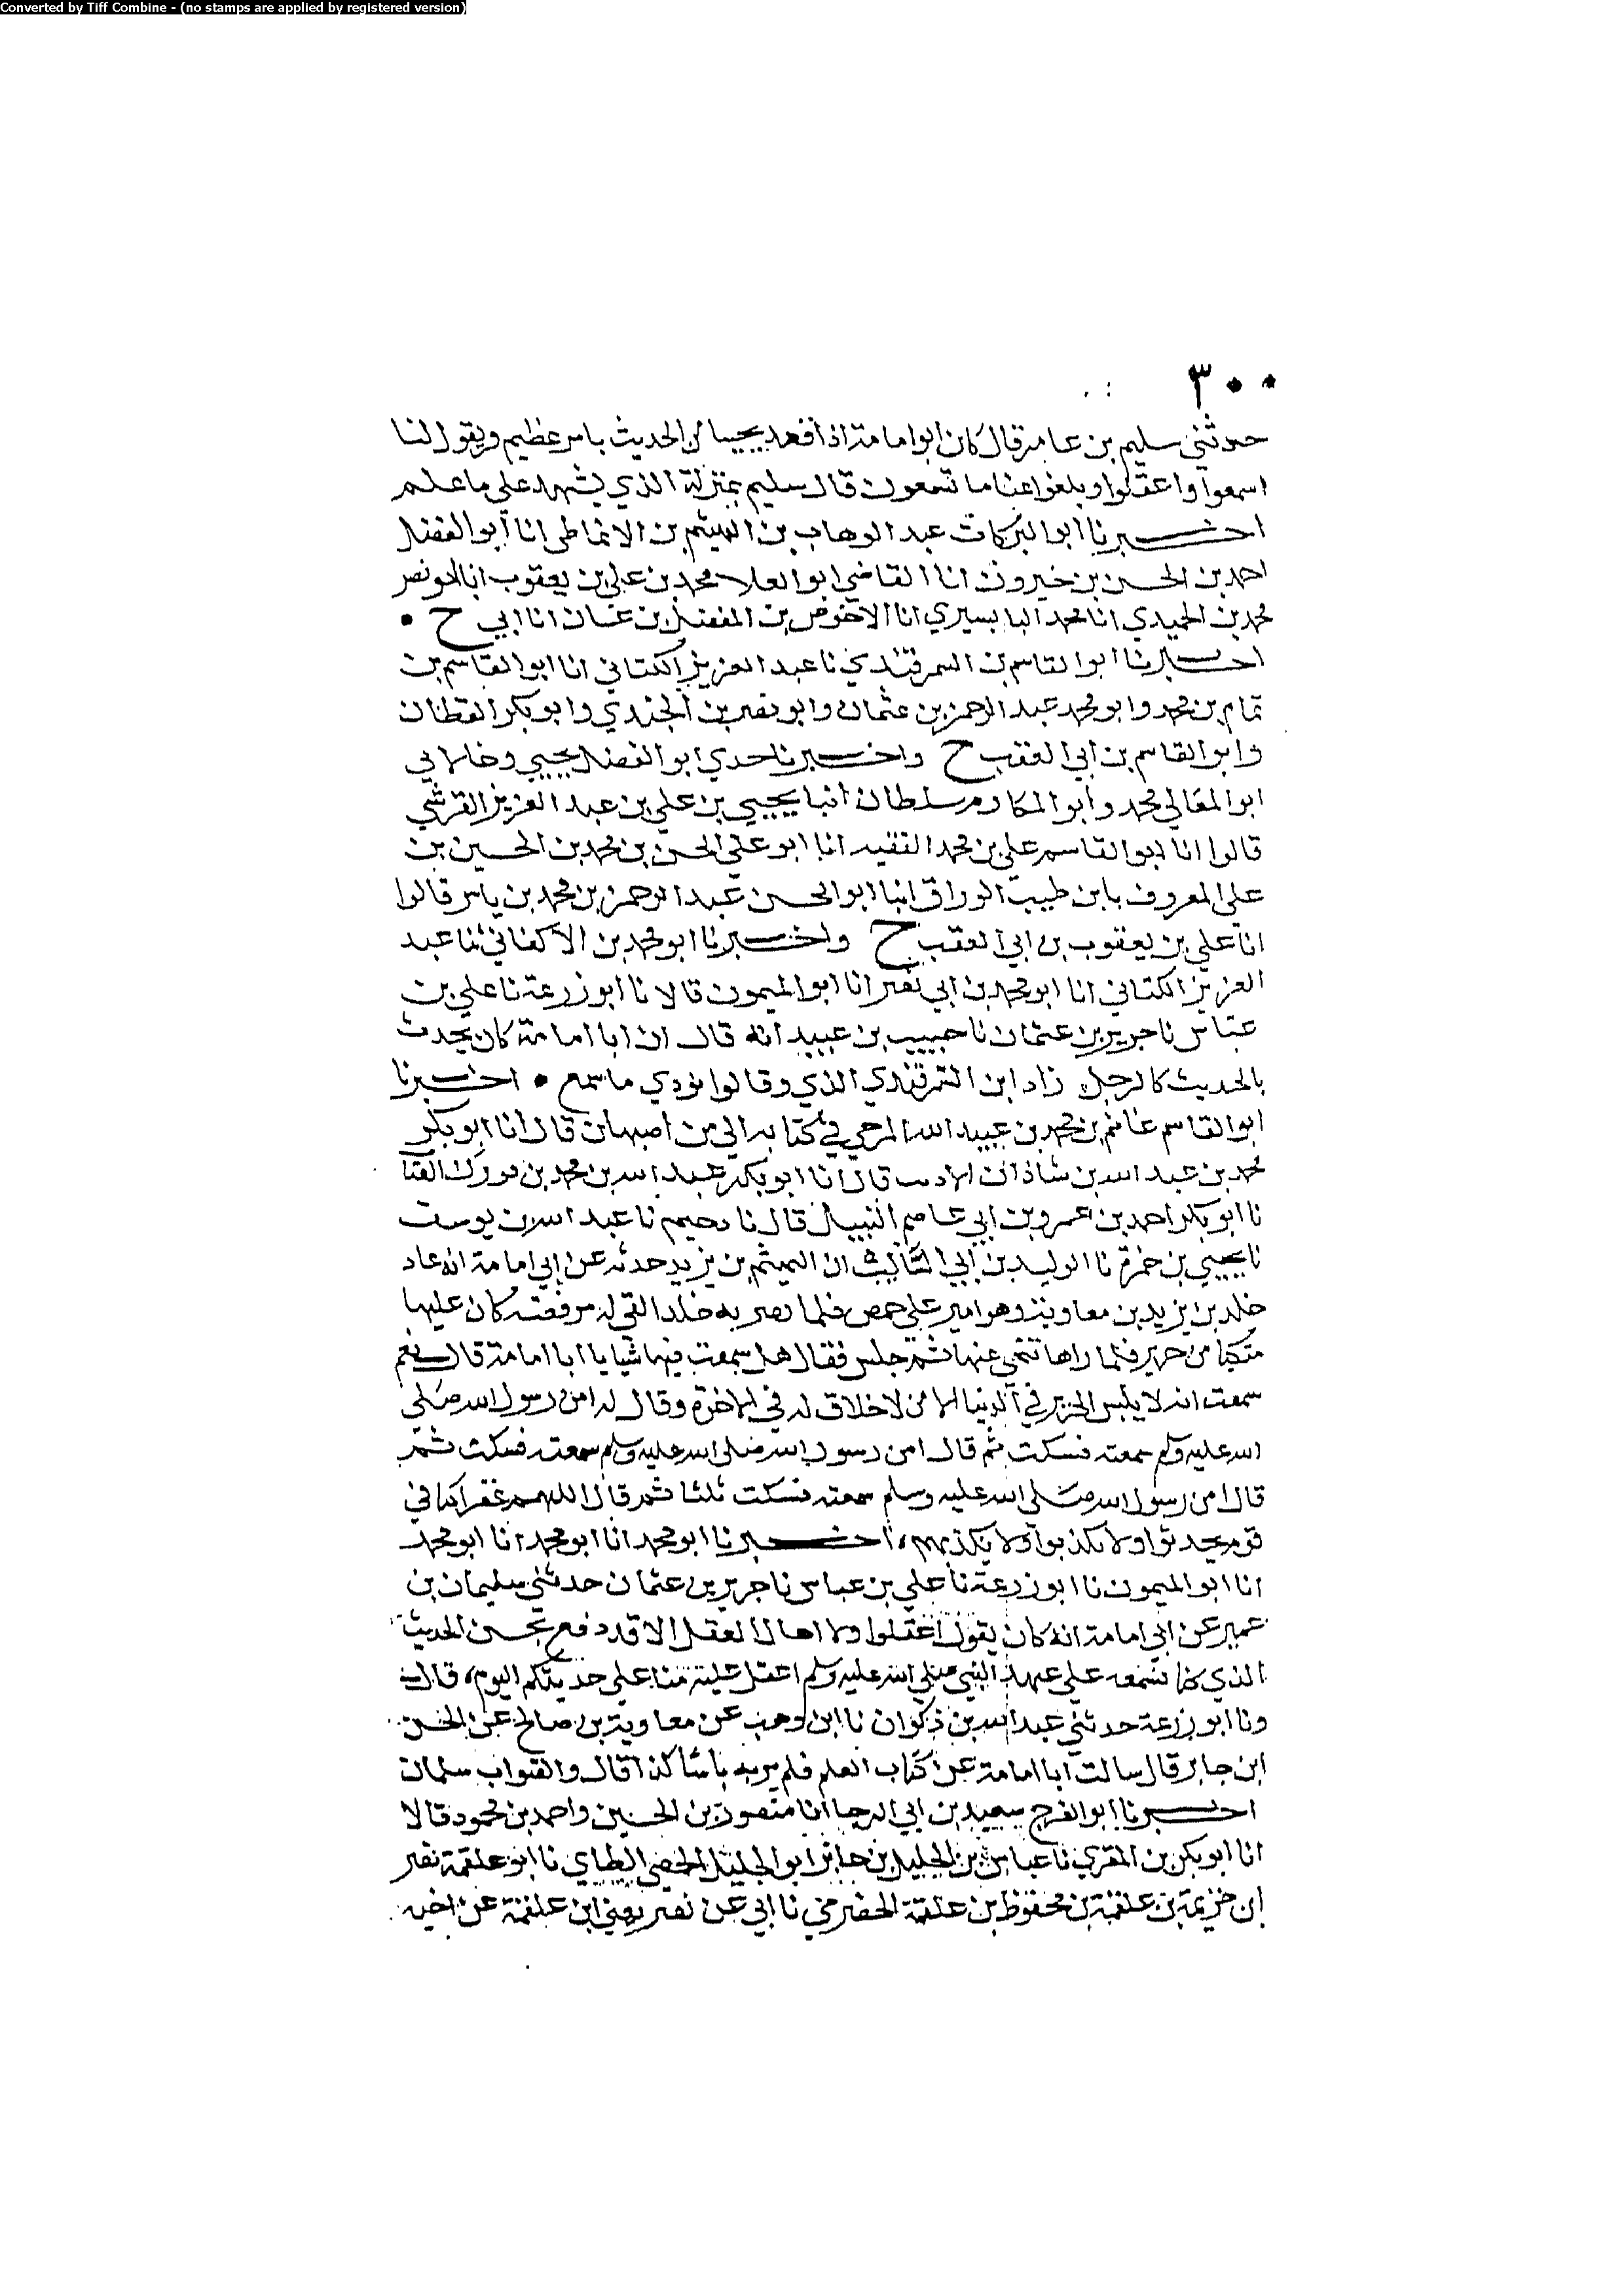 Converted by Tiff Combine - (no stamps are applied by registered version)
٣٠٠
حدثني سليم بن عامر قال كان ابوا مامة اذا قعد يجيبا من الحديث بامر عظيم ويقول لنا
اسمعوا واعقلوا وبلغوا عنا ما تسمعون قال سليم بمنزلة الذي يشهد على ما علم
اخبرنا ابوا البركات عبد الوهاب بن الهيثم بن الانماطي انا ابو الفضل
احمد بن الحسن بن خيرون انا القاضي ابوا لعلا محمد بن علي بن يعقوب انا ابو نصر
محمد بن الحميدي انا محمد البابسيري انا الاخوص بن المفضل بن غسان انا ابي ح •
اخبرنا ابوا لقاسم بن السمرقندي نا عبد العزيز الكتاني انا ابوا لقاسم بن
تمام بن محمد وابو محمد عبد الرحمن بن عثمان وابو نصر بن الجندي وابو بكر القطان
وابو القاسم بن ابي العقب ح واخبرنا جدي ابو الفضل يحيى وخالا بي
ابو المعالي محمد وابو المكارم سلطان انبا يحيى بن علي بن عبد العزيز القرشي
قالوا انا ابوا لقاسم علي بن محمد الفقيه انا ابو علي الحسن بن محمد بن الحسين بن
علي المعروف بابن طيب الوراق انبا ابو الحسن عبد الرحمن بن محمد بن ياسر قالوا
انا علي بن يعقوب بن ابي العقب ح واخبرنا ابو محمد بن الاكفاني ثنا عبد
العزيز الكتاني انا ابو محمد بن ابي نصر انا ابوا لميمون قالا نا ابو زرعة نا علي بن
عباس نا حريز بن عثمان نا حبيب بن عبيد انه قال ان ابا امامة كان يحدث
بالحديث كالرجل زاد ابن السمرقندي الذي وقالوا يؤدي ما سمع • اخبرنا
ابوا لقاسم غانم بن محمد بن عبيد الله المرجي في كتابه الي من اصبهان قال انا ابو بكر
محمد بن عبد الله بن شاذان الاديب قال انا ابو بكر عبد الله بن محمد بن فورك القتا
نا ابو بكر احمد بن عمرو بن ابي عاصم النبيل قال نا دحيم نا عبد الله بن يوسف
نا يحيى بن حمزة نا الوليد بن ابي السائب ان الهيثم بن يزيد حدثه عن ابي امامة انه عاد
خلد بن يزيد بن معاوية وهو امير على حمص فلما بصر به خلد القى له مرفقته كان عليها
متكيا من حرير فلما راها تنحى عنها ثم جلس فقال هل سمعت فيها شيا يا ابا امامة قال نعم
سمعت انه لا يلبس الحرير في الدنيا الا من لا خلاق له في الاخرة وقال له امن رسول الله صلى
الله عليه وسلم سمعته فسكت ثم قال امن رسول الله صلى الله عليه وسلم سمعته فسكت ثم
قال امن رسول الله صلى الله عليه وسلم سمعته فسكت ثلثا ثم قال اللهم غفرا كنا في
قوم يحدثوا ولا يكذبوا ولا يكذبهم، اخبرنا ابو محمد انا ابو محمد انا ابو محمد
انا ابوا لميمون نا ابو زرعة نا علي بن عباس نا حريز بن عثمان حدثني سليمان بن
عمير عن ابي امامة انه كان يقول اعقلوا ولا اهال العقل الا قد دفع بحسن الحديث
الذي كنا نسمعه على عهد النبي صلى الله عليه وسلم اعقل علية منا على حديثكم اليوم، قال
ونا ابو زرعة حدثني عبد الله بن ذكوان نا ابن وهب عن معاوية بن صالح عن الحسن
ابن جابر قال سالت ابا امامة عن كتاب العلم فلم ير به باسا كذا قال والصواب سلمان
اخبرنا ابو الفرج سعيد بن ابي الرجا انا منصور بن الحسين واحمد بن محمود قالا
انا ابو بكر بن المقري نا عباس بن الجليل بن جابر ابو الجليل الحمصي الطاي نا ابو علقمة نصر
ابن خزيمة بن علقمة بن محفوظ بن علقمة الحضرمي نا ابي عن نصر يعني ابن علقمة عن اخيه